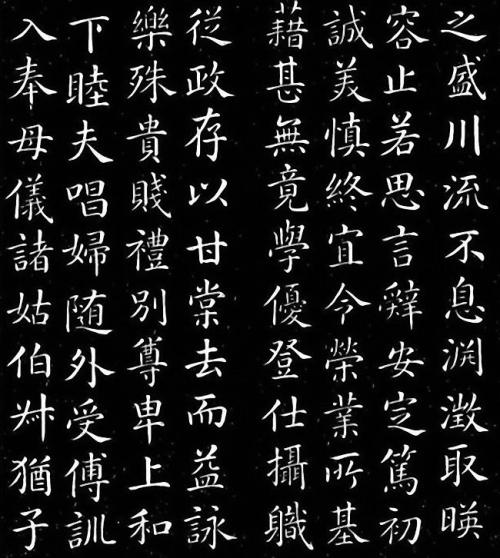 之盛川流不息渕澂取暎
容止若思言辤安定篤初
誠美慎終宜令榮業所基
藉甚無竟學優登仕攝職
從政存以甘棠去而益詠
樂殊貴賤禮別尊卑上和
下睦夫唱婦随外受傅訓
入奉母儀諸姑伯叔猶子